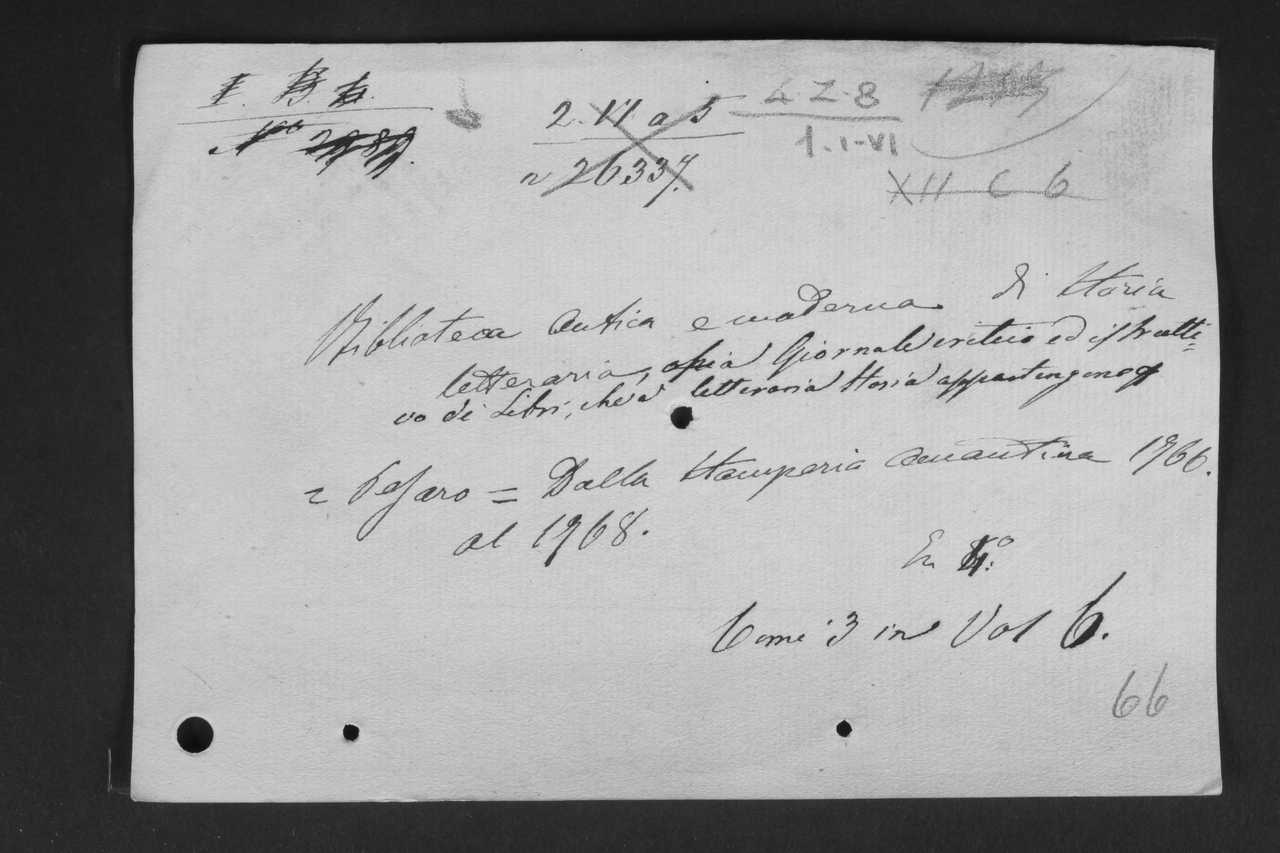 I. B. b.
N.ro 2989.
2. VI. a 5
n 26337.
4. Z. 8
1. I-VI
XII C 6
Biblioteca antica e moderna di storia
letteraria, ossia Giornale critico ed istrutti=
vo de' Libri, che a letteraria storia appartengono
= Pesaro = Dalla Stamperia Amantina 1766.
al 1768.
In 4.°
Tomi 3 in Vol 6.
66